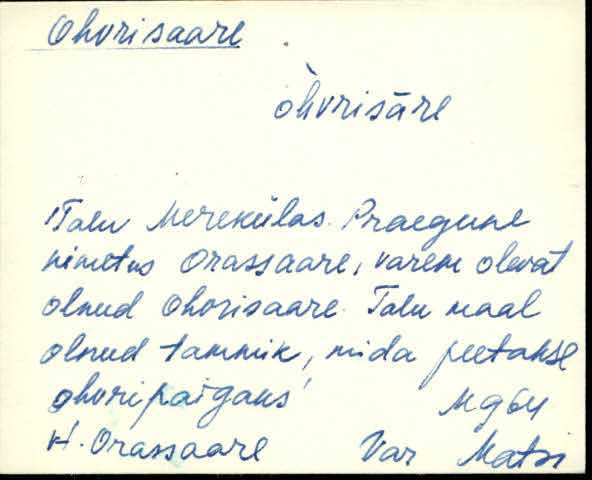 Ohvrisaare
òhvrisāre
'Talu Merekülas. Praegune
nimetus Orassaare, varem olevat
olnud Ohvrisaare. Talu maal
olnud tammik, mida peetakse
ohvripaigaks'
Mg64
H. Orassaare Var Matsi